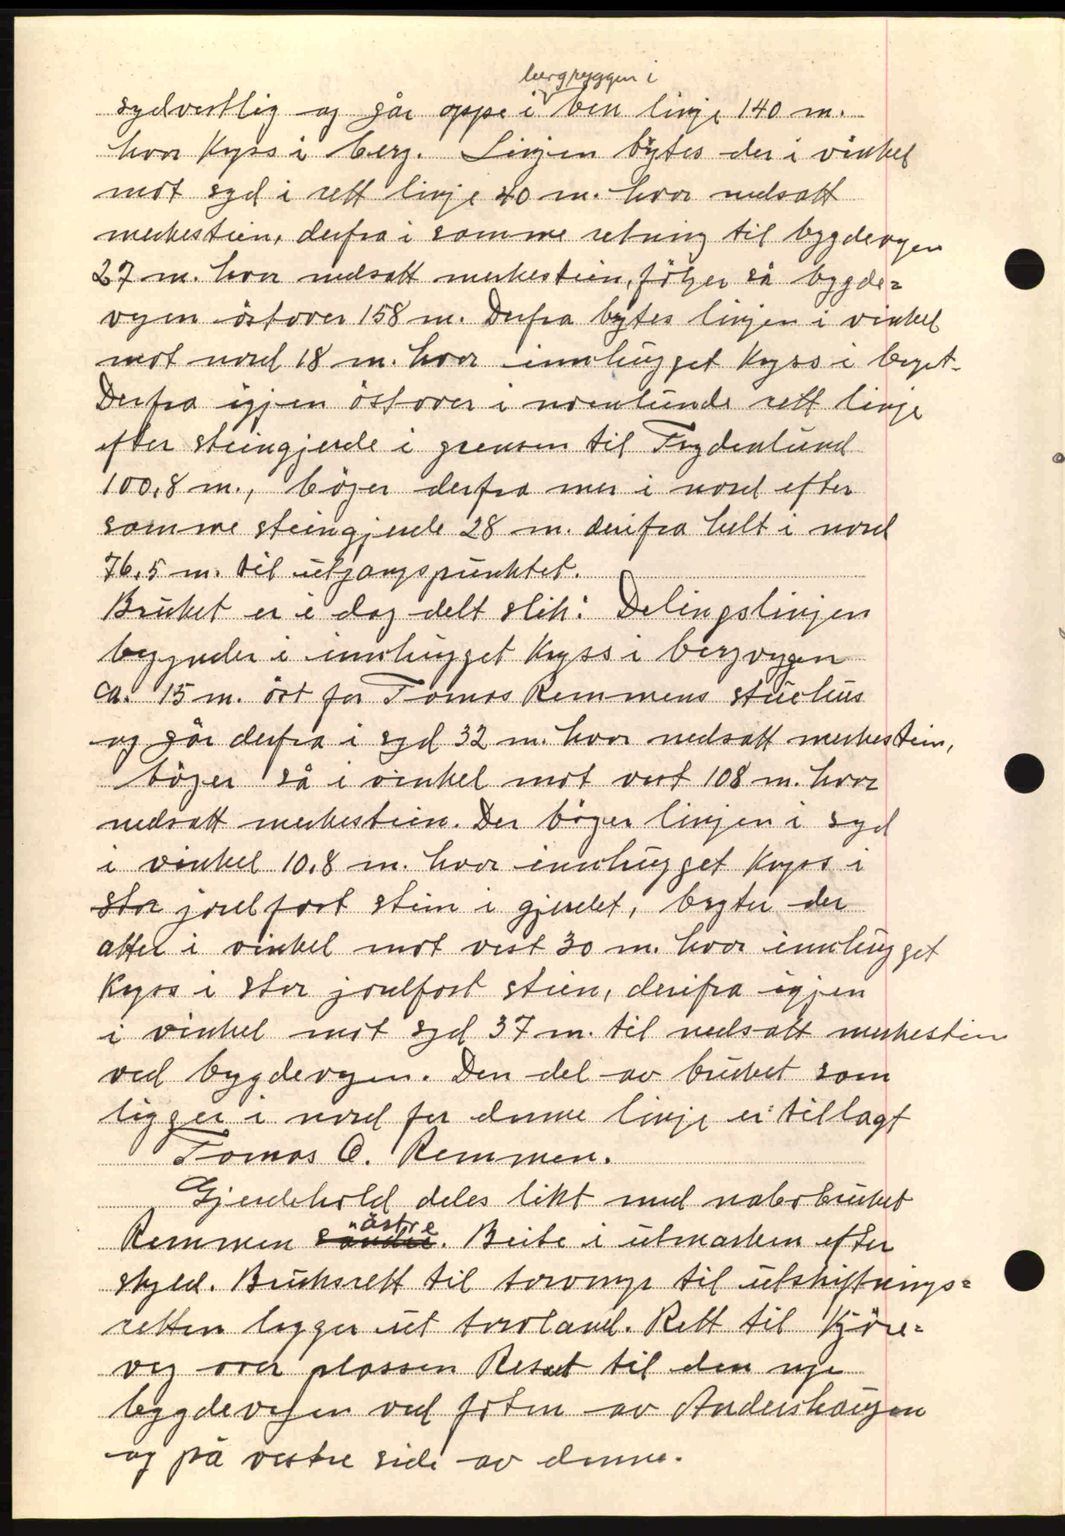 bergryggen i
sydvestlig og går oppe i ben linje 140 m.
hvor kryss i berg. Linjen bytes der i vinkel
mot syd i rett linje 40 m. hvor nedsatt
merkestein, derfra i samme retning til bygdevegen
27 m. hvor nedsatt merkestein, følger så bygde=
vegen østover 158 m. Derfra bytes linjen i vinkel
mot nord 18 m. hvor innhugget kryss i berget.
Derfra igjen østover i noenlunde rett linje
efter steingjerde i grensen til Frydenlund
100,8 m., bøyer derfra mer i nord efter
samme steingjerde 28 m. derifra helt i nord
76,5 m. til utgangspunktet.
Bruket er i dag delt slik: Delingslinjen
begynder i innhugget kryss i bergveggen
ca. 15 m. øst for Tomas Remmens stuehus
og går derfra i syd 32 m. hvor nedsatt merkestein,
bøyer så i vinkel mot vest 108 m. hvor
nedsatt merkestein. Der bøyer linjen i syd
i vinkel 10,8 m. hvor innhugget kryss i
stor jordfast stein i gjerdet, bryter der
atter i vinkel mot vest 30 m. hvor innhugget
kryss i stor jordfast stein, derifra igjen
i vinkel mot syd 37 m. til nedsatt merkestein
ved bygdevegen. Den del av bruket som
ligger i nord for denne linje er tillagt
Tomas O. Remmen.
Gjerdehold deles likt med nabobruket
"østre
Remmen søndre. Beite i utmarken efter
skyld. Bruksrett til torvmyr til utskiftnings=
retten legger ut torvland. Rett til kjøre=
veg over plassen Reset til den nye
bygdevegen ved foten av Andershaugen
og på vestre side av denne.